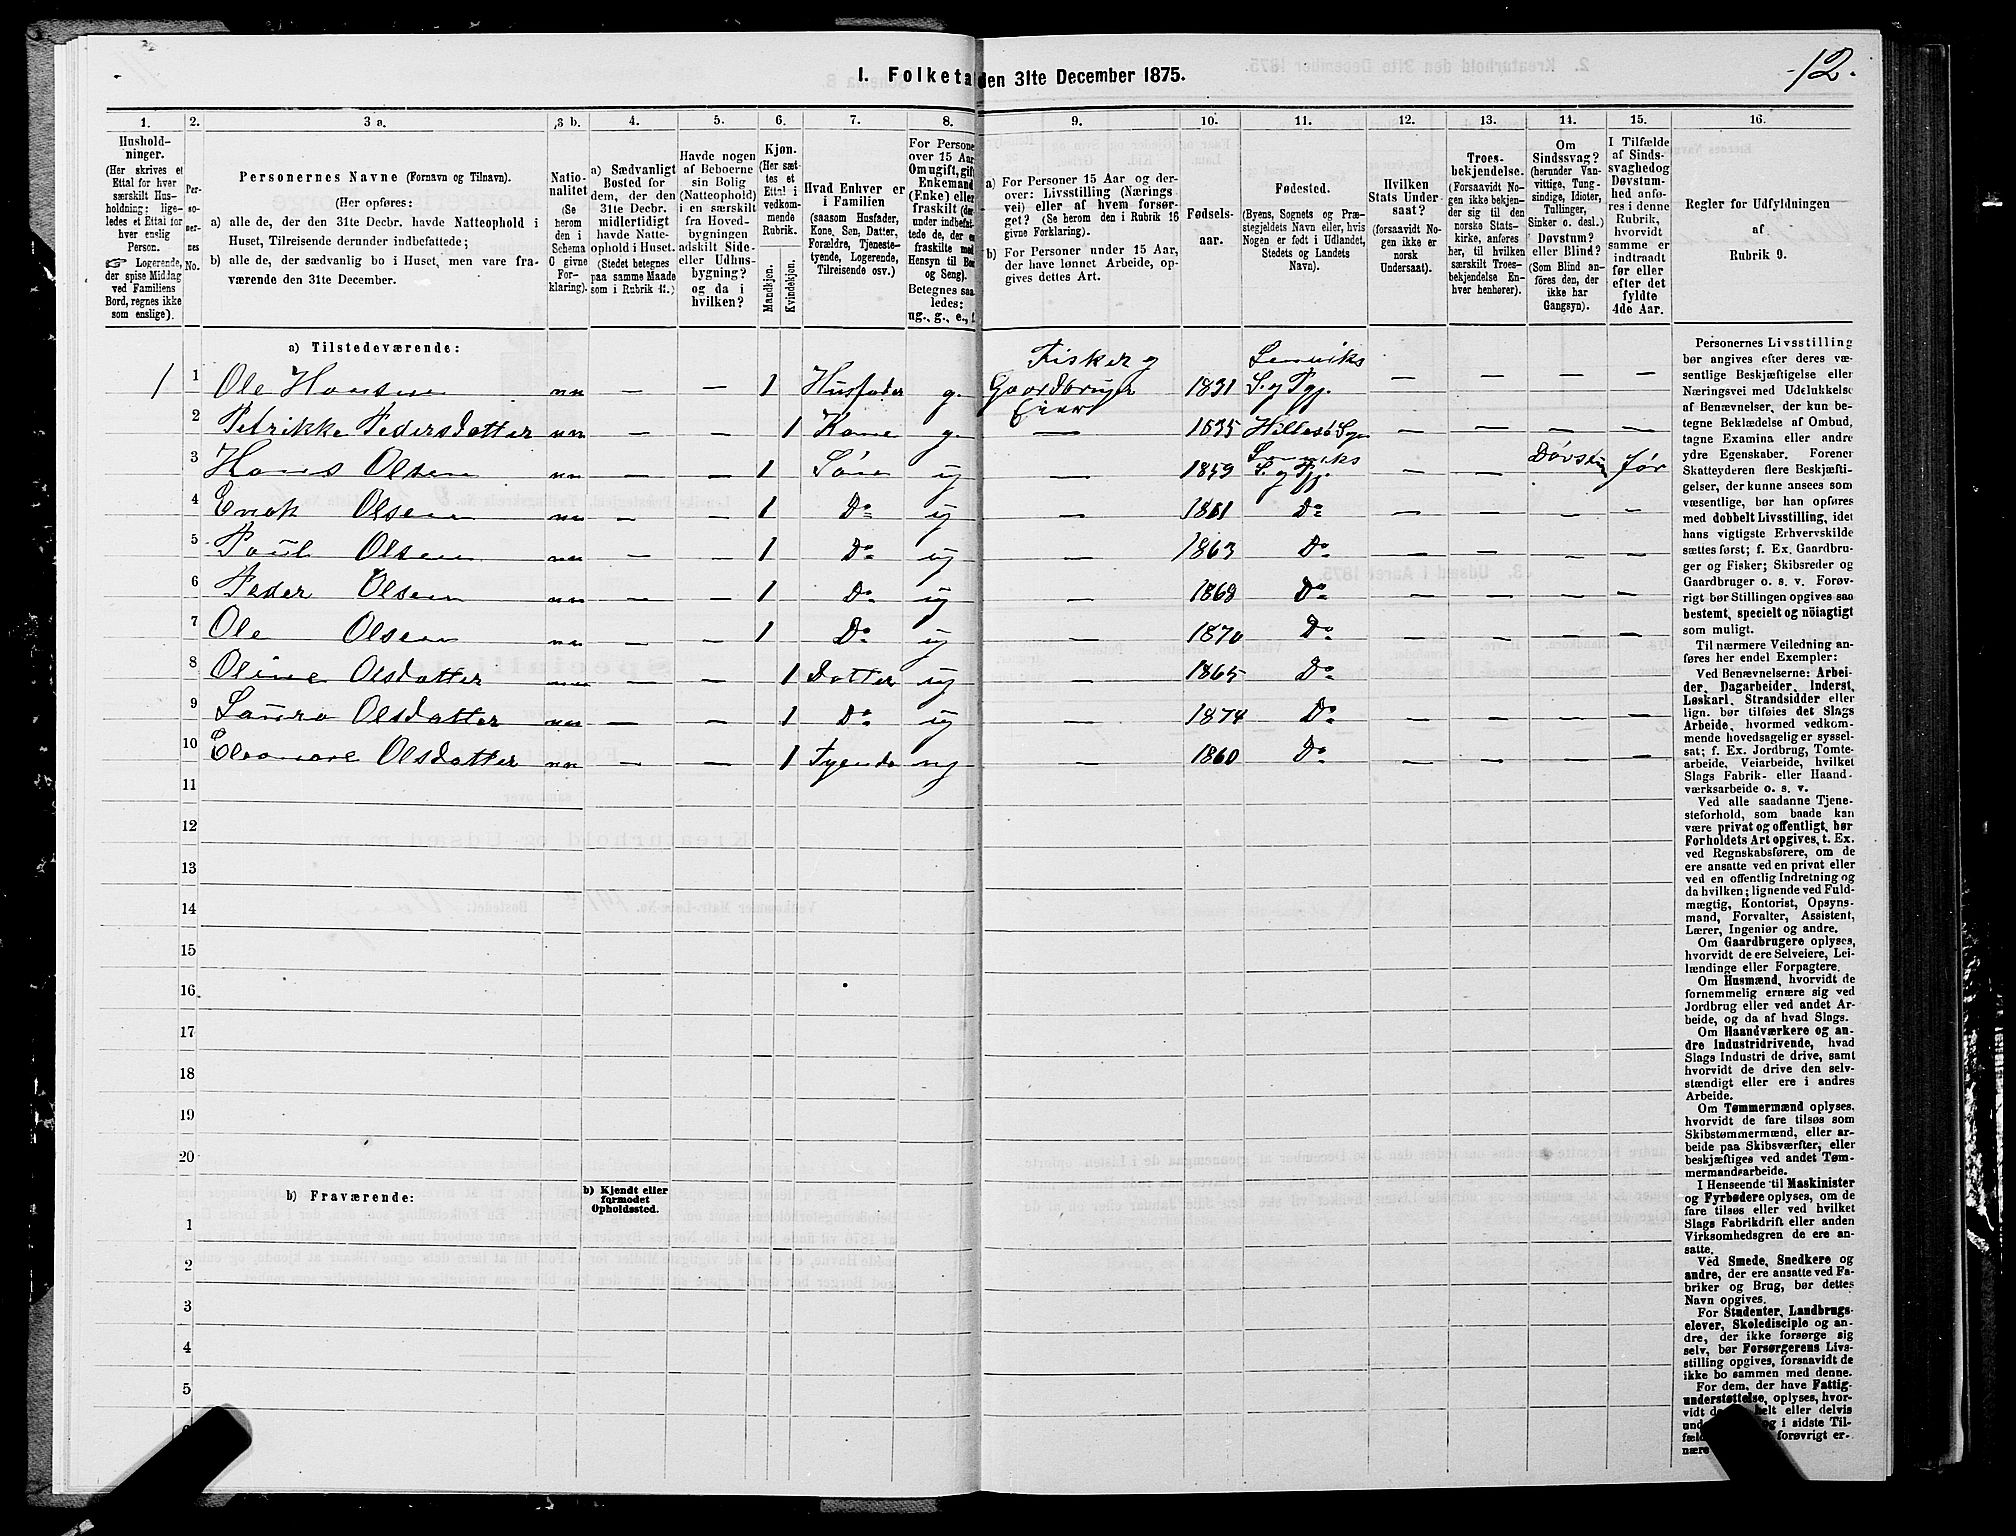 12.
1. Folketa den 31te December 1875.
1. 2. 3 a. 3 b. 4. 5. 6. 7. 8. 9. 10. 11. 12. 13. 14. 15. 16.
Hushold-
ninger.
(Her skrives et
Ettal for hver
særskilt Hus-
holdning; lige-
ledes et Ettal for
hver enslig
Person.
☞ Logerende,
der spise Middag
ved Familiens
Bord, regnes ikke
som enslige).
Per-
soner-
nes
No.
Personernes Navne (Fornavn og Tilnavn).
(Her opføres:
a) alle de, der den 31te Decbr. havde Natteophold i
Huset, Tilreisende derunder indbefattede;
b) alle de, der sædvanlig bo i Huset, men vare fra-
værende den 31te December.
Natio-
nalitet
(Se
herom
den i
Schema
C givne
For-
klaring).
a) Sædvanligt
Bosted for
dem, der den
31te Decbr.
midlertidigt
havde Natte-
ophold i Huset.
(Stedet betegnes
paa samme Maade
som i Rubrik 11.)
Havde nogen
af Beboerne
sin Bolig
(Natteophold)
i en særskilt
fra Hoved-
bygningen
adskilt Side-
eller Udhus-
bygning?
og da i
hvilken?
Kjøn.
(Her sæt-
tes et
Ettal i
vedkom-
mende
Rubrik.
Mandkjøn.
Kvindekjøn.
Hvad Enhver er
i Familien
(saasom Husfader,
Kone, Søn, Datter,
Forældre, Tjeneste-
tyende, Logerende,
Tilreisende osv.)
For Persone
over 15 Aar
Om ugift, gift
Enkemand
(Enke) eller
fraskilt (der
under indbefat-
tede de, der e
fraskilte med
Hensyn til Bo
og Seng).
Betegnes saa
ledes:
ug., g., e., f.
a) For Personer 15 Aar og der-
over: Livsstilling (Nærings
vei) eller af hvem forsør-
get? (Se herom den i Rubrik 16
givne Forklaring).
b) For Personer under 15 Aar,
der have lønnet Arbeide, op-
gives dettes Art.
Fødsels-
aar.
Fødested.
(Byens, Sognets og Præ-
stegjeldets Navn eller, hvis
Nogen er født i Udlandet,
Stedets og Landets
Navn).
Hvilken
Stats Under-
saat?
(forsaavidt No-
gen ikke er
norsk
Undersaat).
Troes-
bekjendelse.
(Forsaavidt No-
gen ikke bekjen-
der sig til den
norske Stats-
kirke, anføres
her, til hvilken
særskilt Troes-
bekjendelse En-
hver henhører).
Om
Sindssvag?
(herunder Van-
vittige, Tung-
sindige, Idioter,
Tullinger,
Sinker o. desl.)
Døvstum?
eller Blind?
(Som Blind an-
føres den, der
ikke har
Gangsyn).
I Tilfælde
af Sinds-
svaghed og
Døvstum-
hed anfø-
res i denne
Rubrik,
hvorvidt
samme er
indtraadt
før eller
efter det
fyldte
4de Aar.
Regler for Udfyldningen
af
Rubrik 9.
a) Tilstedeværende:
Fisker og Lenviks
1 1 Ole Hansen nn — — 1 Husfader g. Gaardbruger 1831 S. og Pgj. — — — —
Eier
2 Petrikke Pedersdatter nn — — 1 Kone g. — 1835 Hillesö Sgn — — — —
Lenviks
3 Hans Olsen nn — — 1 Sön ug — 1859 S. og Pgj. — — Døvstum før
4 Enok Olsen nn — — 1 Do ug — 1861 Do — — — —
5 Poul Olsen nn — — 1 Do ug — 1863 Do — — — —
6 Peder Olsen nn — — 1 Do ug — 1868 Do — — — —
7 Ole Olsen nn — — 1 Do ug — 1870 Do — — — —
8 Oline Olsdatter nn — — 1 Datter ug — 1865 Do — — — —
9 Laura Olsdatter nn — — 1 Do ug — 1874 Do — — — —
10 Eleonore Olsdatter nn — — 1 Tyende ug — 1860 Do — — — —
11
12
13
14
15
16
17
18
19
20
b) Fraværende:
b) Kjendt eller
formodet
Opholdssted.
1
2
3
4
5
Personernes Livsstilling
bør angives efter deres væ-
sentlige Beskjæftigelse eller
Næringsvei med Udelukkelse
af Benævnelser, der kun be-
tegne Beklædelse af Ombud,
tagne Examina eller andre
ydre Egenskaber. Forener
Skatteyderen flere Beskjæfti-
gelser, der kunne ansees som
væsentlige, bør han opføres
med dobbelt Livsstilling, idet
hans vigtigste Erhvervskilde
sættes først; f. Ex. Gaardbru-
ger og Fisker; Skibsreder og
Gaardbruger o. s. v. Forøv-
rigt bør Stillingen opgives saa
bestemt, specielt og nöiagtigt
som muligt.
Til nærmere Veiledning an-
føres her endel Exempler:
Ved Benævnelserne: Arbei-
der, Dagarbeider, Inderst,
Løskarl, Strandsidder eller
lign. bør tilføies det Slags
Arbeide, hvormed vedkom-
mende hovedsagelig er syssel-
sat; f. Ex. Jordbrug, Tomte-
arbeide, Veiarbeide, hvilket
Slags Fabrik- eller Haand-
værksarbeide o. s. v.
Ved alle saadanne Tjene-
steforhold, som baade kan
være privat og offentligt, bør
Forholdets Art opgives, t. Ex.
ved Regnskabsførere, om de
ere ansatte ved en privat eller
ved en offentlig Indretning og
da hvilken; lignende ved Fuld-
mægtig, Kontorist, Opsyns-
mand, Forvalter, Assistent,
Lærer, Ingeniør og andre.
Om Gaardbrugere oplyses,
hvorvidt de ere Selveiere, Lei-
lændinge eller Forpagtere.
Om Husmænd, hvorvidt de
fornemmelig ernære sig ved
Jordbrug eller ved andet Ar-
beide, og da af hvad Slags.
Om Haandværkere og an-
dre Industridrivende, hvad
Slags Industri de drive, samt
hvorvidt de drive den selv-
stændigt eller ere i andres
Arbeide.
Om Tømmermænd oplyses,
hvorvidt de fare tilsøs som
Skibstømmermænd, eller ar-
beide paa Skibsværfter, eller
beskjæftiges ved andet Tøm-
mermandsarbeide.
I Henseende til Maskinister
og Fyrbødere oplyses, om de
fare tilsøs eller ved hvilket
Slags Fabrikdrift eller anden
Virksomhedsgren de ere an-
satte.
Ved Smede, Snedkere og
andre, der ere ansatte ved Fa-
briker og Brug, bør dettes
Navn opgives.
For Studenter, Landbrugs-
elever, Skoledisciple og an-
dre, der ikke forsørge sig
selv, bør Forsørgerens Livs-
stilling opgives, forsaavidt de
ikke bo sammen med denne.
For dem, der have Fattig-
understøttelse, oplyses, hvor-
vidt d helt eller delvis
und og i sidste Til-
fæld forøvrigt er-
nære